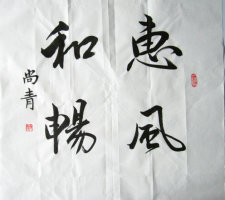 惠風
和暢
尚青